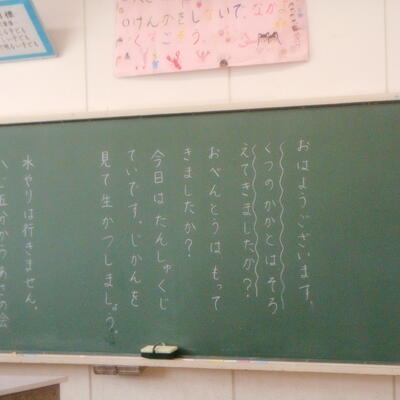 目標
けんかをしないで、なかよ
くすごそう。
おはようございます。
くつのかかとはそろ
えてきましたか?
おべんとうはもって
きましたか?
今日はたんしゅくじ
ていです。じかんを
見て生かつしましょう。
水やりは行きません。
八じ五分からあさの会